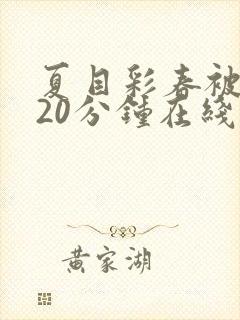 夏目彩春被
20分鍾在綫
黄家湖